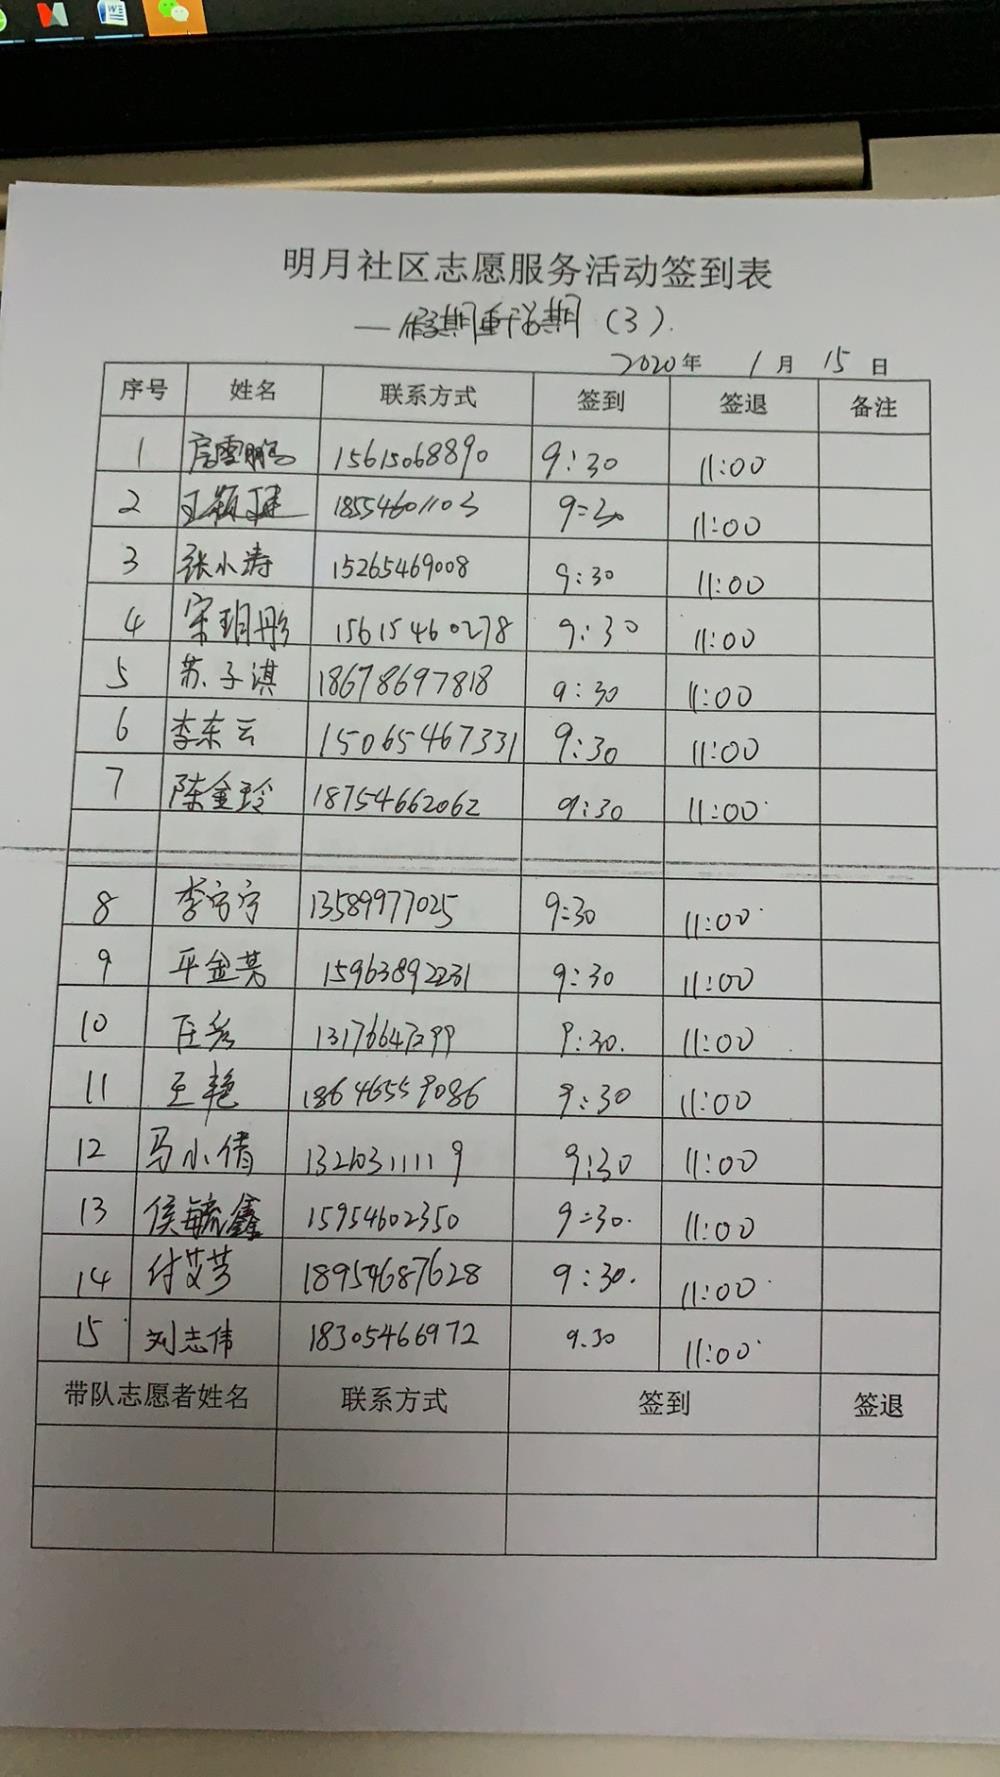 明月社区志愿服务活动签到表
—假期重 期（3）.
2020年 1月 15日
序号 姓名 联系方式 签到 签退 备注
1 房雪鹏 15615068890 9:30 11:00
2 王颖 18554601103 9:30 11:00
3 张小涛 15265469008 9:30 11:00
4 宋玥彤 15615460278 9:30 11:00
5 苏子淇 18678697818 9:30 11:00
6 李东云 15065467331 9:30 11:00
7 陈金玲 18754662062 9:30 11:00
8 李宁宁 13589977025 9:30 11:00
9 平金英 15963892231 9:30 11:00
10 13176647299 9:30. 11:00
11 王艳 18646559086 9:30 11:00
12 马小倩 13210311119 9:30 11:00
13 侯毓鑫 15954602350 9:30. 11:00
14 付艾芳 18954687628 9:30. 11:00
15 刘志伟 18305466972 9.30 11:00
带队志愿者姓名 联系方式 签到 签退